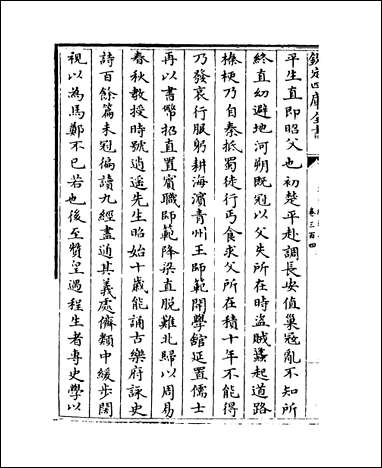 欽定四庫全書
卷三百四
平生直即昭父也初楚平赴調長安值巢寇亂不知所
終直幼避地河朔既冠以父失所在時盜賊蠭起道路
榛梗乃自秦抵蜀徒行丐食求父所在積十年不能得
乃發哀行服躬耕海濱青州王師範開學館延置儒士
再以書幣招直置賓職師範降梁直脫難北歸以周易
春秋教授時號逍遙先生昭始十歲能誦古樂府詠史
詩百餘篇未冠徧讀九經盡通其義處儕類中緩步闊
視以為馬鄭不已若也後至贊皇遇程生者專史學以